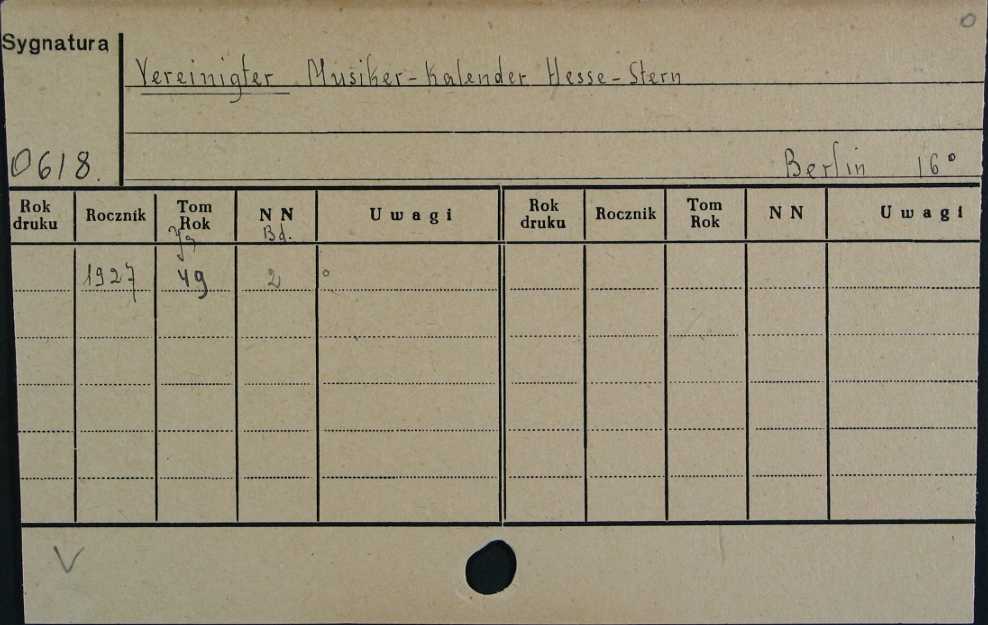 Sygnatura
Vereinigter Musiker-Kalender Hesse-Stern
0618.
Berlin 16°
Rok druku Rocznik Tom Rok NN Uwagi Rok druku Rocznik Tom Rok NN Uwagi
Jg Bd.
1927 49 2 °
V